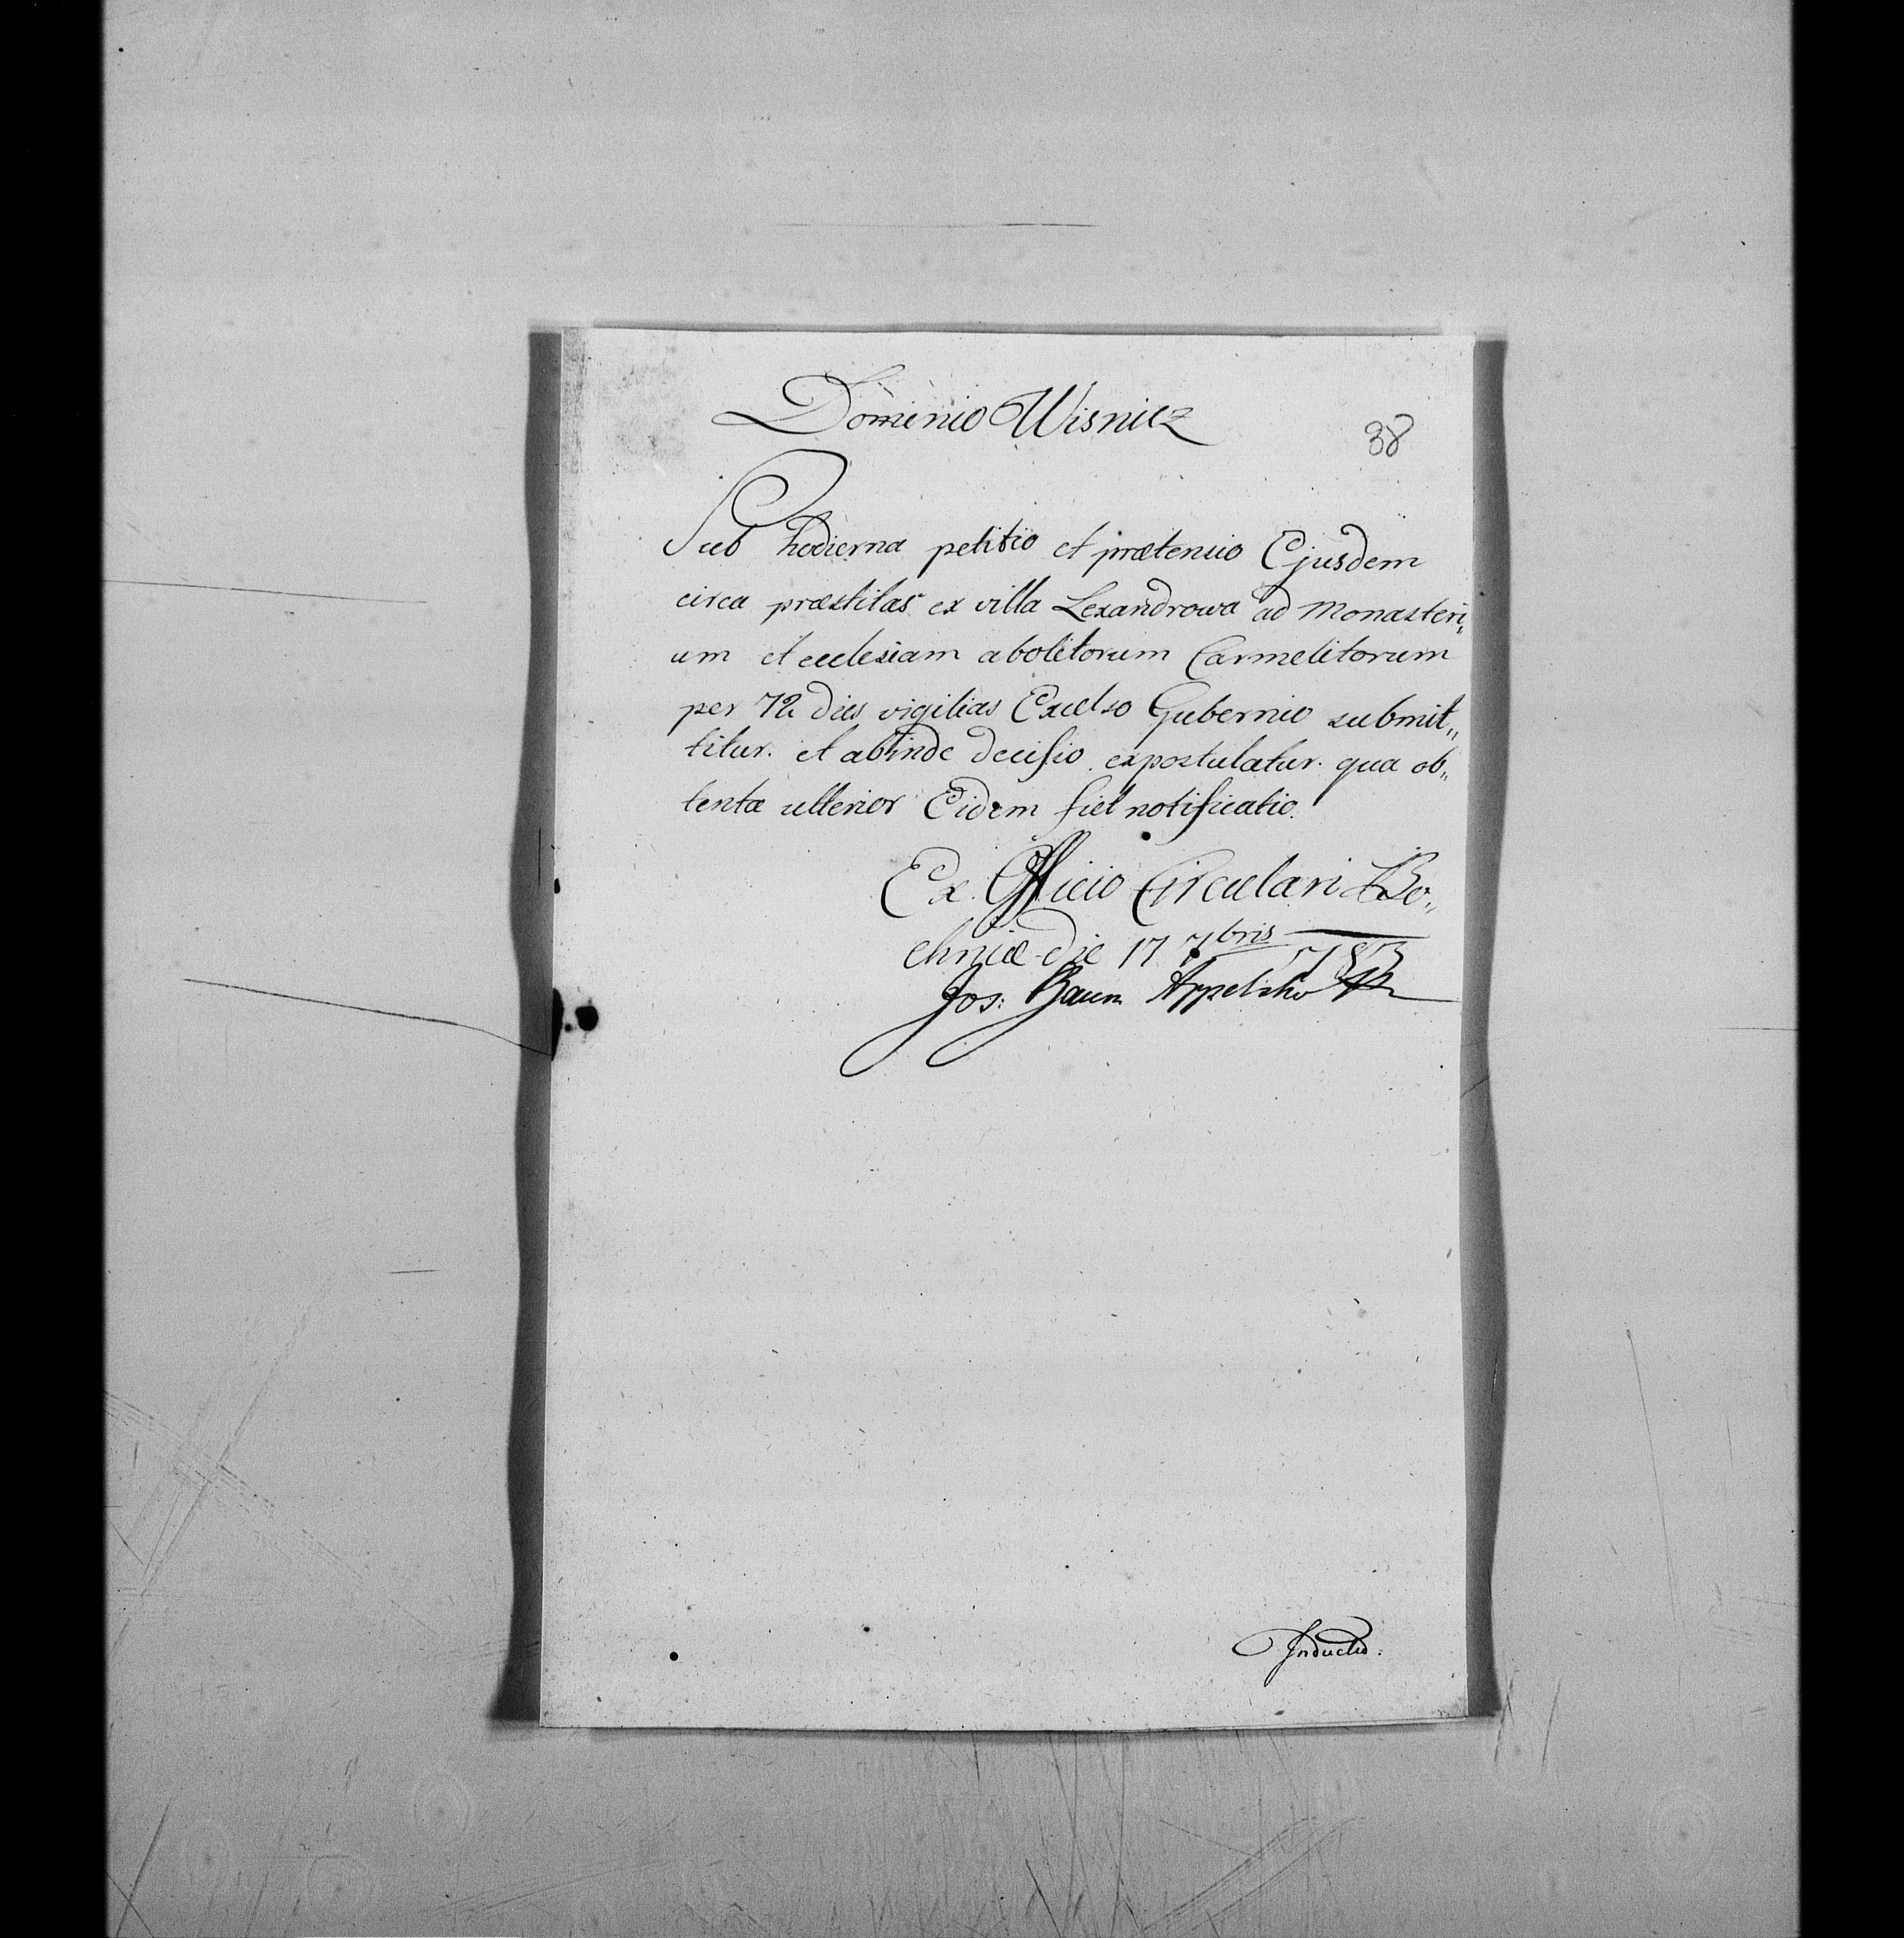 Dominio Wisnicz
38
Sub hodierna petitio et prætensio Ejusdem
circa præstitas ex villa Lexandrowa ad Monasteri„
um et ecclesiam abolitorum Carmelitorum
per 72 dies vigilias Excelso Gubernio submit„
titur. et abinde decisio expostulatur. qua ob„
tenta ulterior Eidem fiet notificatio.
Ex Officio Circulari Bo„
chniæ die 17 7bris 787
Jos: Baum
Inductio: